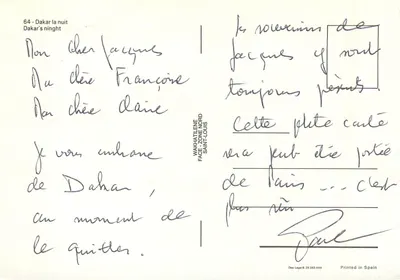 64 - Dakar la nuit
Dakar's ninght
Mon cher Jacques
Ma chère Françoise
Ma chère Claire
Je vous embrasse
de Dakar,
au moment de
le quitter.
WAKHATILENE
FACE - ZEINE NORD
SAINT-LOUIS
les souvenirs de
Jacques y sont
toujours présents.
Cette petite carte
sera peut être postée
de Paris... c'est
plus sûr
Paul
Printed in Spain